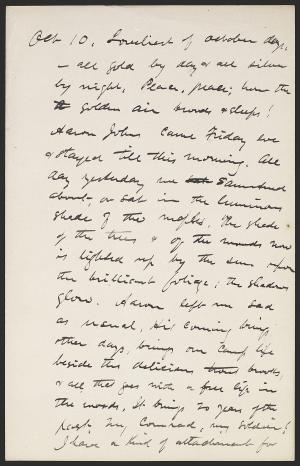 Oct 10. Loveliest of October days,
— all gold by day & all silver
by night. Peace, peace; how the
golden air broods & sleeps!
Aaron Johns came Friday eve
& stayed till this morning. All
day yesterday we sauntered
about, or sat in the luminous
shade of the maples. The shade
of the trees & of the woods now
is lighted up by the sun upon
the brilliant foliage; the shadows
glow. Aaron left me sad
as usual, his coming brings
other days, brings our Camp life
beside the delicious brooks,
& all that goes with a free life in
the woods. It brings 20 years of the
past. My Comrad, my Soldier!
I have a kind of attachment for